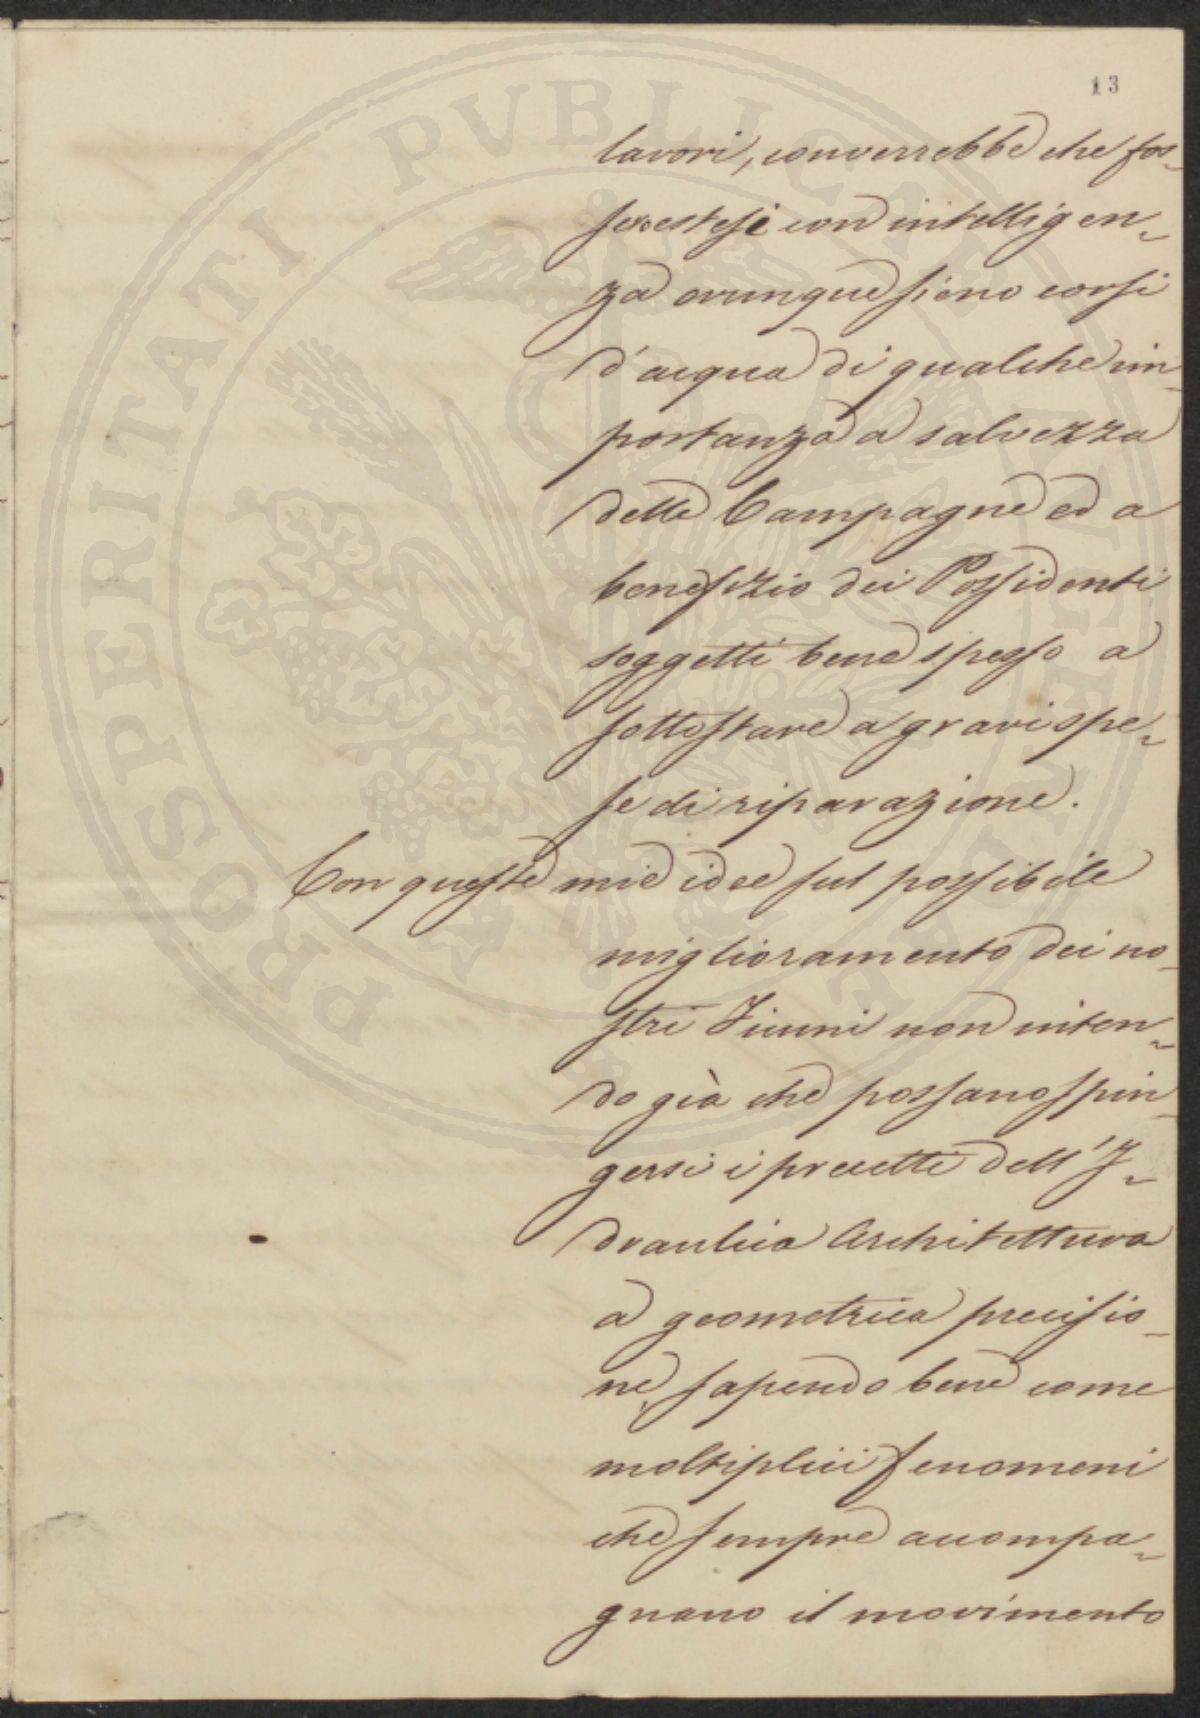 13
lavori, converrebbe che fos-
sero estesi con intelligen-
za ovunque sieno corsi
d'acqua di qualche im-
portanza a salvezza
delle Campagne ed a
benefizio dei Possidenti
soggetti bene spesso a
sottostare a gravi spe-
se di riparazione.
Con queste mie idee sul possibile
miglioramento dei no-
stri Fiumi non inten-
do già che possano spin-
gersi i precetti dell'I-
draulica Architettura
a geometrica precisio-
ne, sapendo bene come
moltiplici fenomeni
che sempre accompa-
gnano il movimento
PROSPERITATI PVBLICAE AVGENDAE